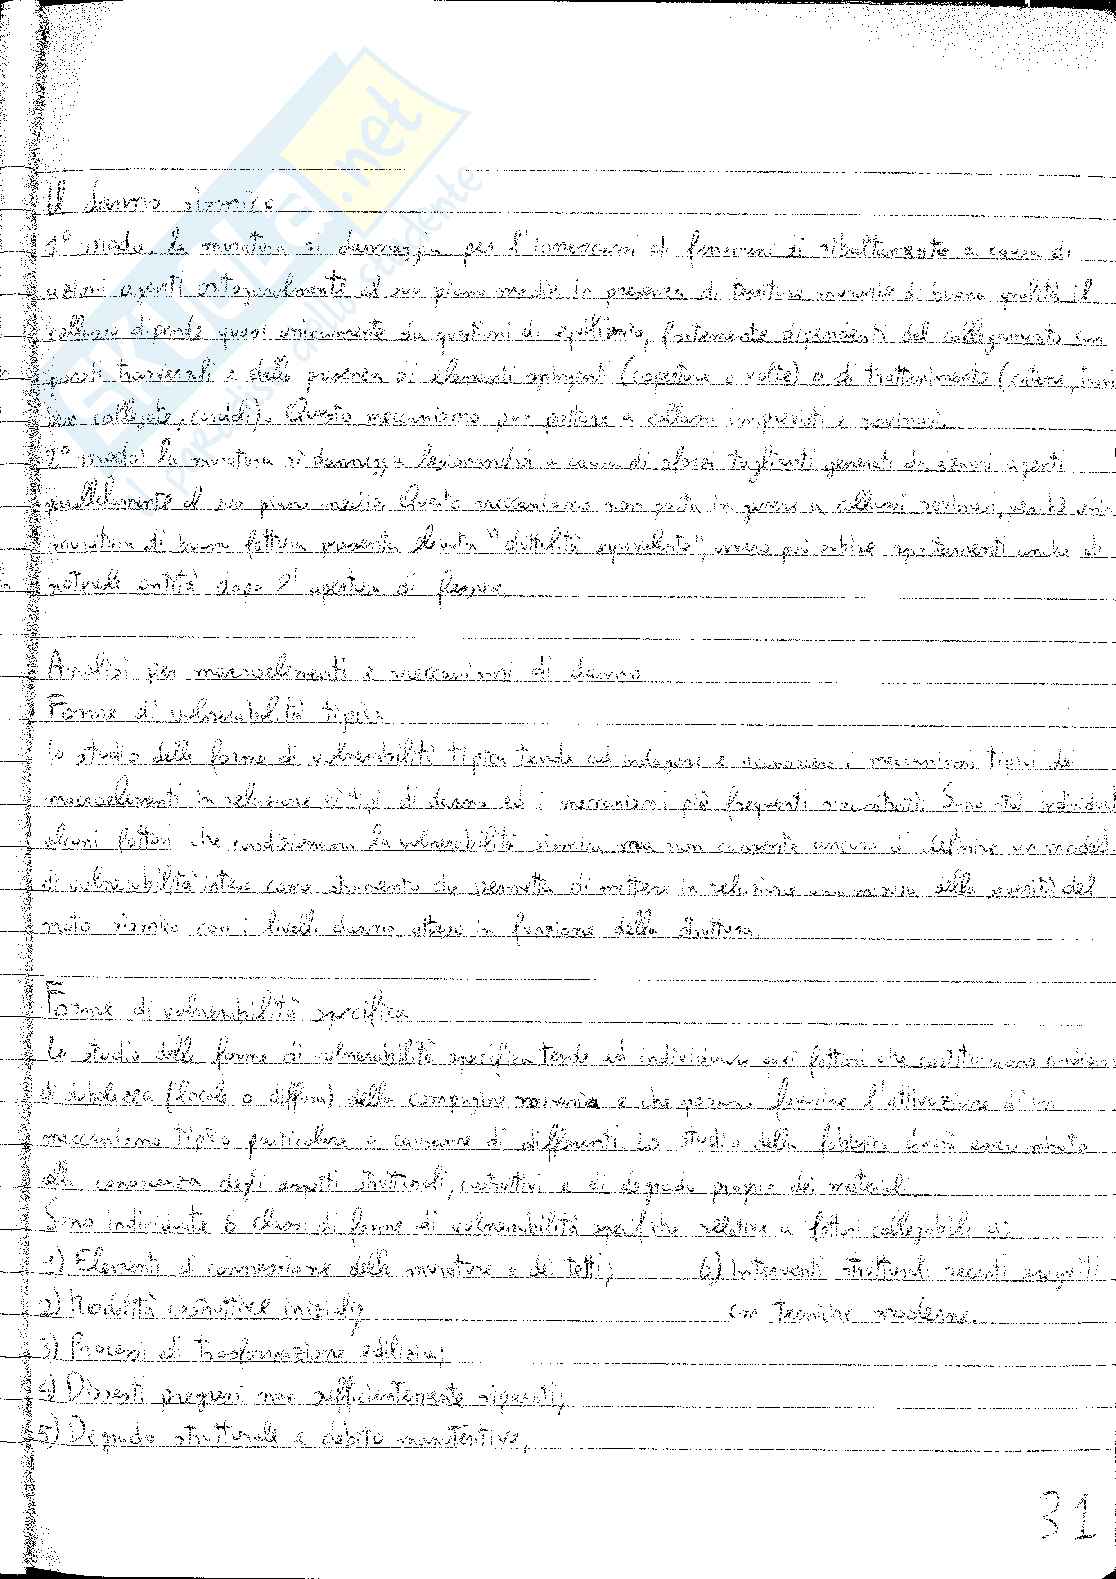 Il danno sismico
1° modo. la muratura si danneggia per l'innescarsi di fenomeni di ribaltamento a causa di
azioni agenti ortogonalmente al suo piano medio. In presenza di tessitura muraria di buona qualità il
collasso dipende quasi unicamente da questioni di equilibrio, fortemente dipendenti dal collegamento con
pareti trasversali e dalla presenza di elementi spingenti (coperture o volte) o di trattenimento (catene,
ben collegate, cordoli). Questo meccanismo può portare a collassi improvvisi e rovinosi.
2° modo: la muratura si danneggia lesionandosi a causa di sforzi taglianti generati da azioni agenti
parallelamente al suo piano medio. Questo meccanismo non porta in genere a collassi rovinosi, perché una
muratura di buona fattura presenta elevata "duttilità equivalente", ovvero può subire spostamenti anche di
notevole entità dopo l'apertura di
Analisi per macroelementi e meccanismi di danno
Forme di vulnerabilità tipica
Lo studio delle forme di vulnerabilità tipica tende ad indagare e riconoscere i meccanismi tipici dei
macroelementi in relazione ai tipi di danno ed i meccanismi più frequenti riscontrati. Sono stati individuati
alcuni fattori che condizionano la vulnerabilità sismica ma non consente ancora di definire un modello
di vulnerabilità inteso come strumento che permetta di mettere in relazione una misura della severità del
moto sismico con i livelli danno attesi in funzione della struttura.
Forme di vulnerabilità specifica
Lo studio delle forme di vulnerabilità specifica tende ad individuare quei fattori che costituiscono
di debolezza (locale o diffusa) della compagine muraria e che possono favorire l'attivazione di un
meccanismo tipico particolare o causare di differenti. Lo studio della fabbrica dovrà essere mirato
alla conoscenza degli aspetti strutturali, costruttivi e di degrado proprio dei materiali.
Sono individuate 6 classi di forme di vulnerabilità specifiche relative a fattori collegabili a:
1) Elementi di connessione delle murature e dei tetti;
6) Interventi strutturali recenti eseguiti
2) Modalità costruttive iniziali;
con tecniche moderne.
3) Processi di trasformazione edilizia;
4) Dissesti pregressi non sufficientemente riparati;
5) Degrado strutturale e debito manutentivo;
31
SKUOLA.net